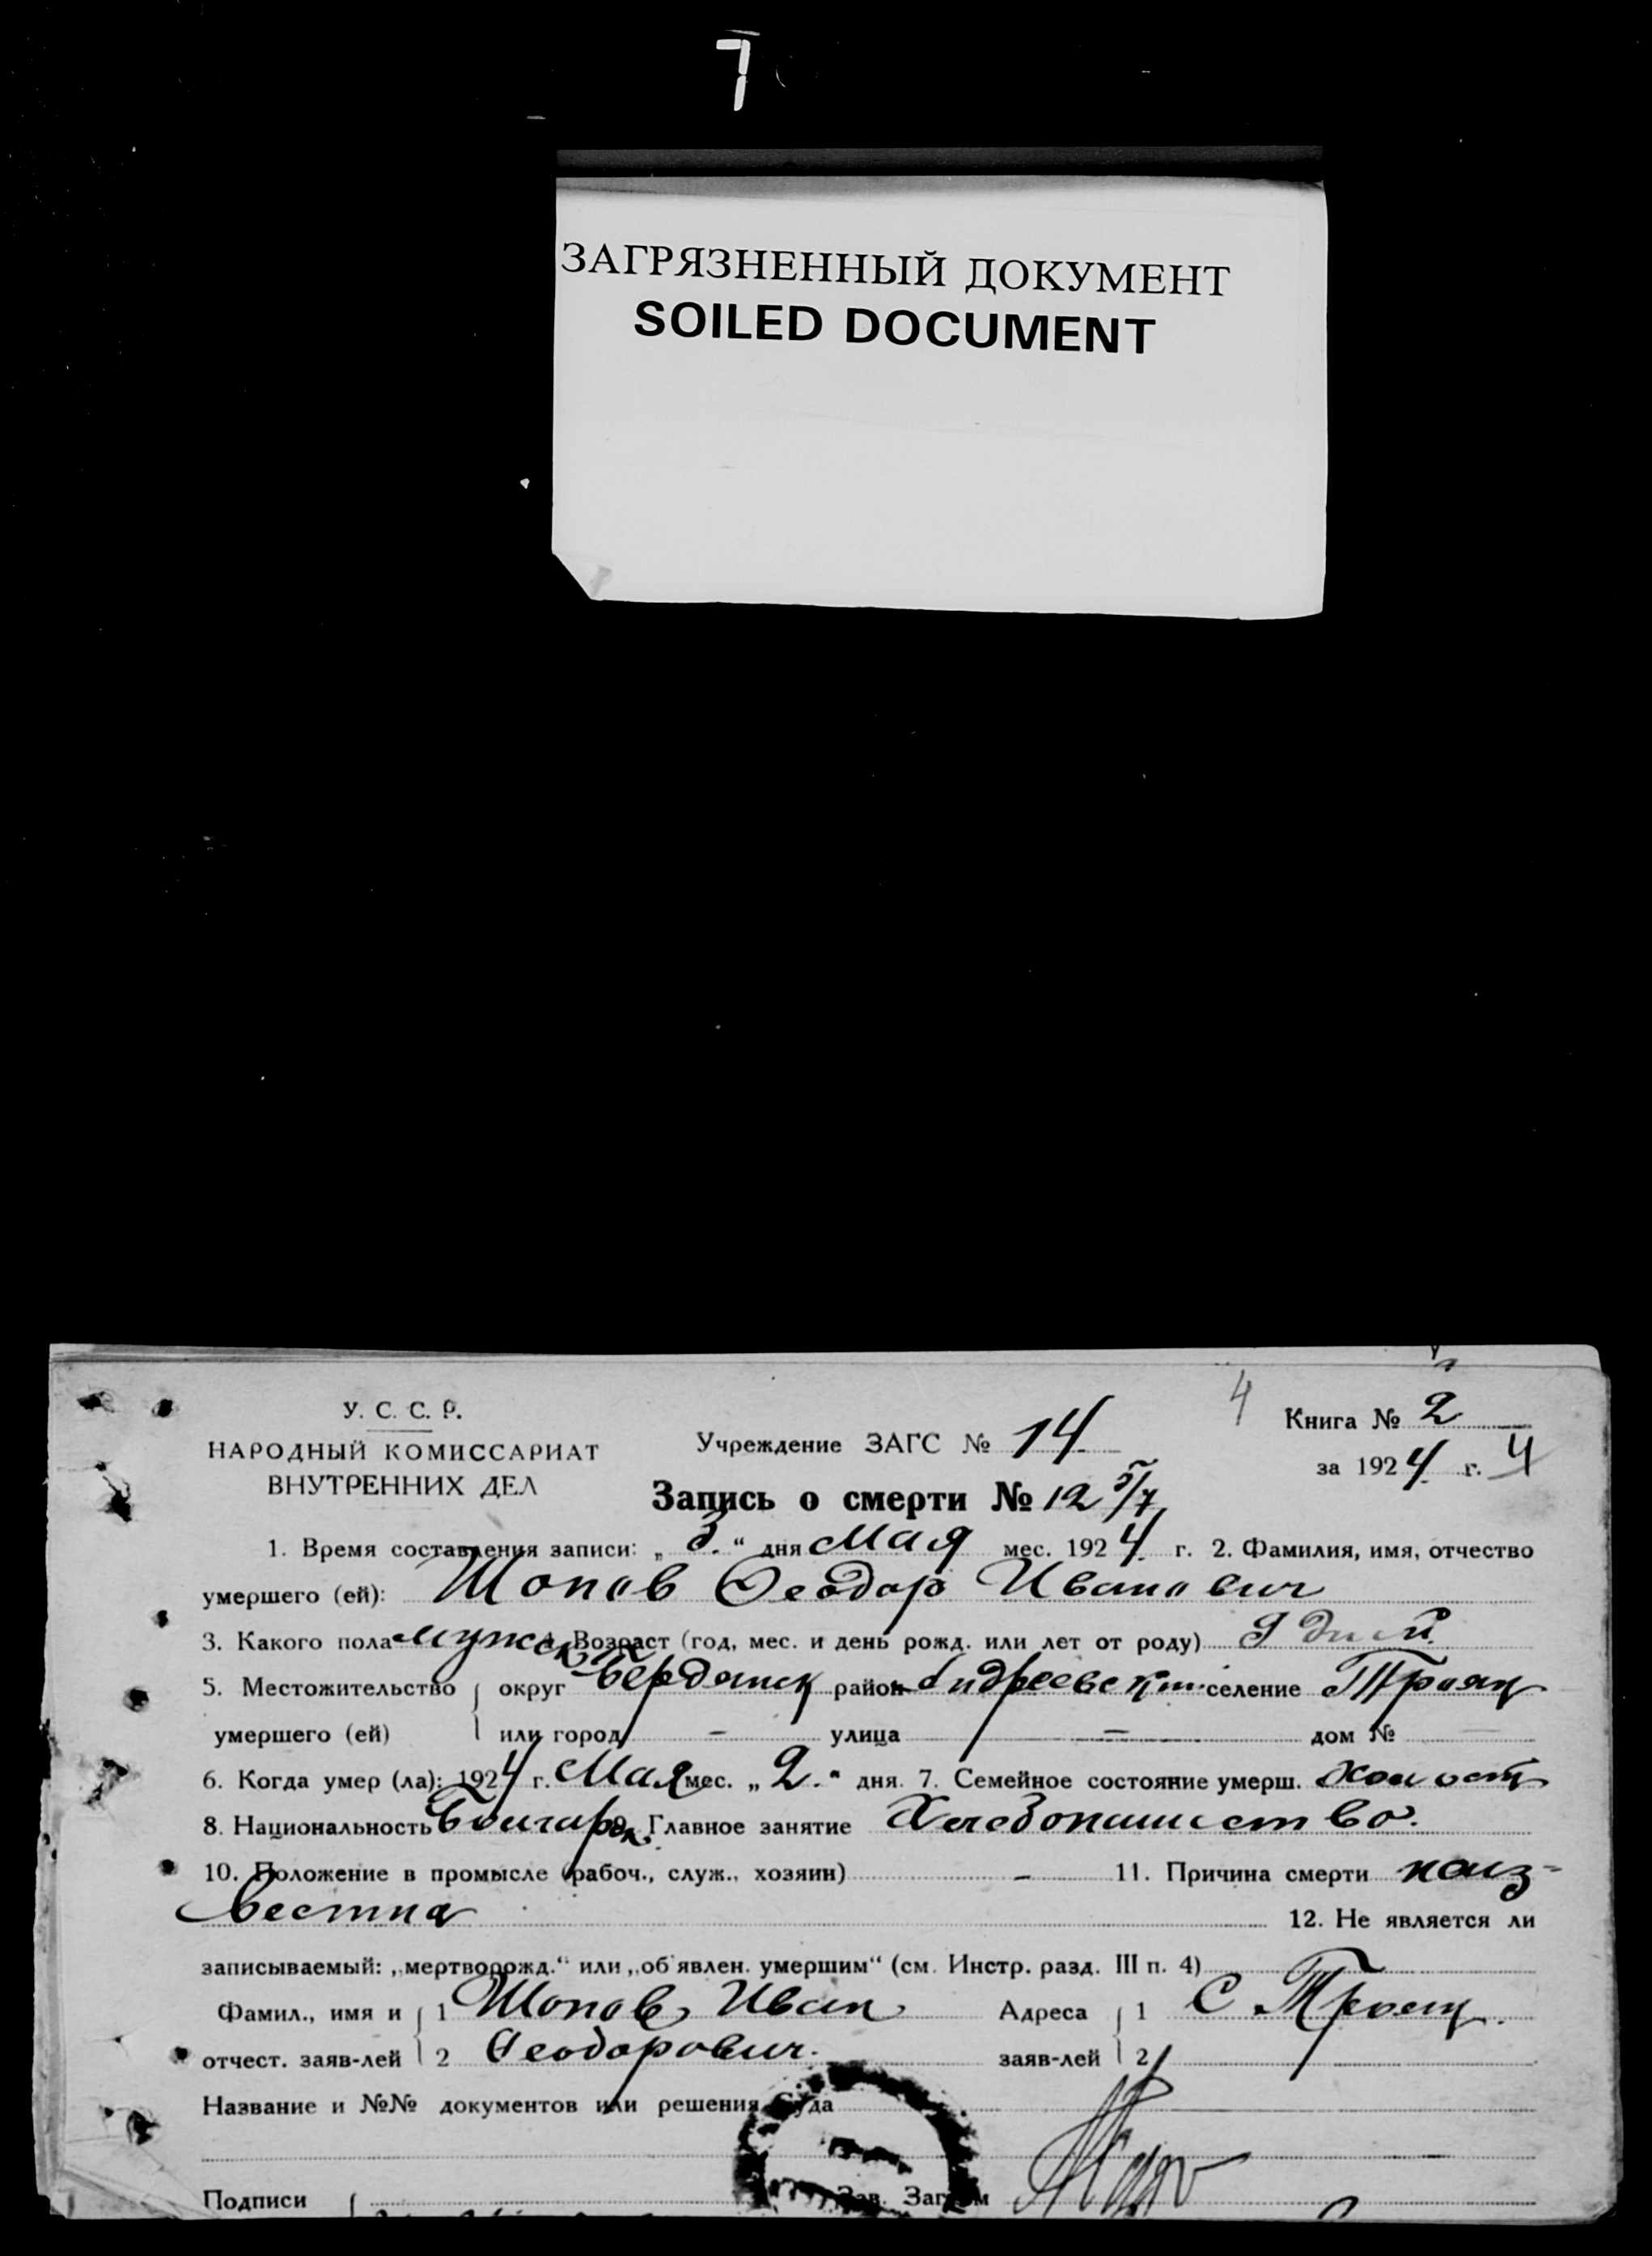 7
ЗАГРЯЗНЕННЫЙ ДОКУМЕНТ
SOILED DOCUMENT
4
У. С. С. Р.
НАРОДНЫЙ КОМИССАРИАТ
ВНУТРЕННИХ ДЕЛ
Учреждение ЗАГС № 14
Книга № 2
за 1924 г. 4
Запись о смерти № 12 5/7
1. Время составления записи: „3.“ дня Мая мес. 1924 г. 2. Фамилия, имя, отчество
умершего (ей): Шопов Феодор Иванович
3. Какого пола мужск 4. Возраст (год, мес. и день рожд. или лет от роду) 9 дней
5. Местожительство округ Бердянск район Андреевский селение Троян
умершего (ей) или город – улица – дом №
6. Когда умер (ла): 1924 г. Мая мес. „2.“ дня. 7. Семейное состояние умерш. холост
8. Национальность Болгар 9. Главное занятие Хлебопашество.
10. Положение в промысле (рабоч., служ., хозяин) – 11. Причина смерти неиз-
вестна 12. Не является ли
записываемый: „мертворожд.“ или „об'явлен. умершим“ (см. Инстр. разд. III п. 4)
Фамил., имя и 1 Шопов Иван Адреса 1 С. Троян
отчест. заяв-лей 2 Феодорович. заяв-лей 2
Название и №№ документов или решения Суда
Подписи Зав. Загсом